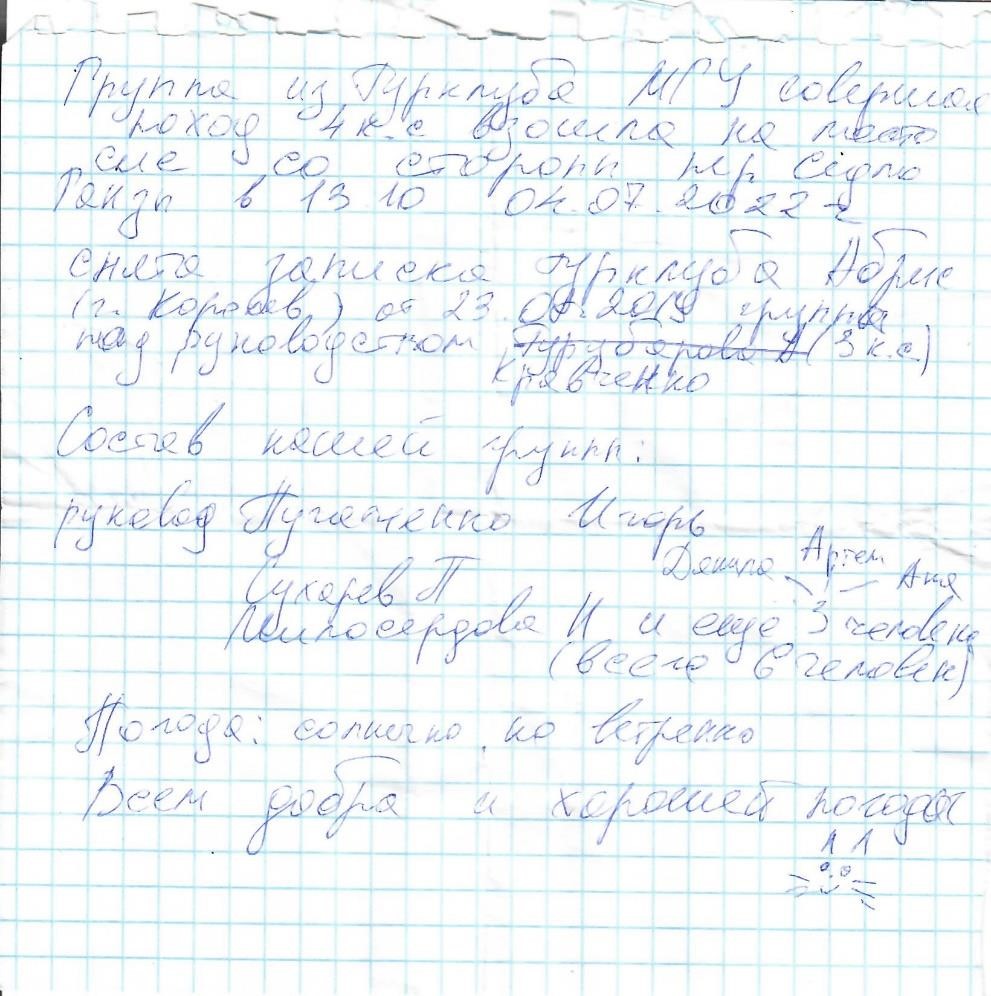 Группа из Турклуба МГУ совершая
поход 4 к.с взошла на место
сие со стороны пер Сидло
Ганзы в 13.10 04.07.2022 г
снята записка Турклуба Абрис
(г. Королев) от 23.07.2019 группа
под руководством Турубарова А (3 к.с.)
Кравченко
Состав нашей группы:
руковод Пугаченко Игорь
Данила Артем Аня
Сухарев П
Милосердова И и еще 3 человека
(всего 6 человек)
Погода: солнечно, но ветренно
Всем добра и хорошей погоды